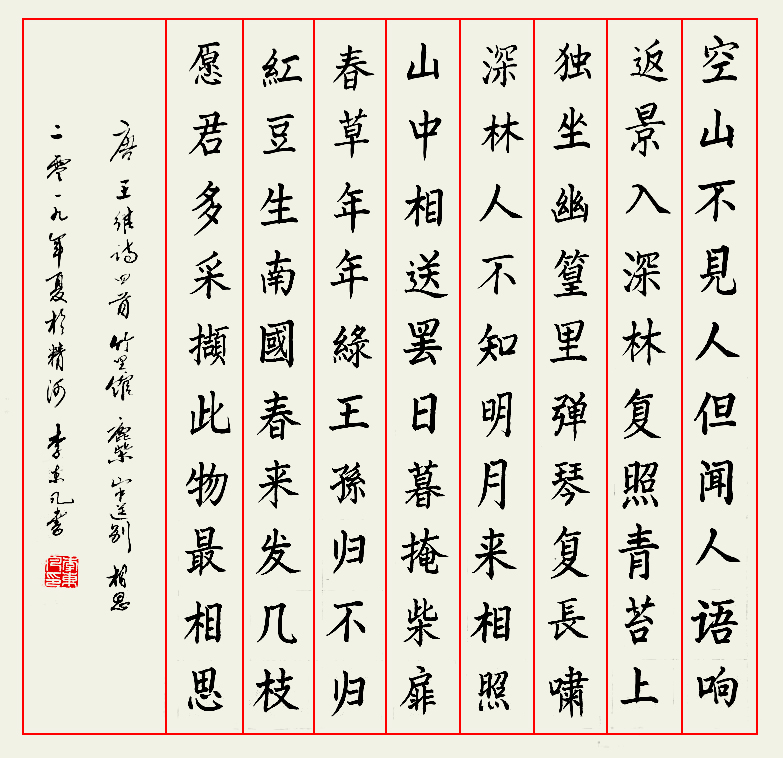 空山不見人但闻人语响
返景入深林复照青苔上
独坐幽篁里弹琴复長嘯
深林人不知明月来相照
山中相送罢日暮掩柴扉
春草年年綠王孫归不归
紅豆生南國春来发几枝
愿君多采擷此物最相思
唐王维诗四首 竹里馆 鹿柴 山中送别 相思
二零一九年夏於精河 李东凡书